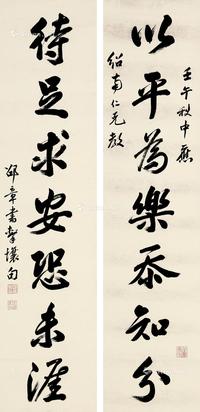 壬午秋中應
紹南仁兄教
以平為樂忝知分
待足求安恐未涯
邵章書擊壤句